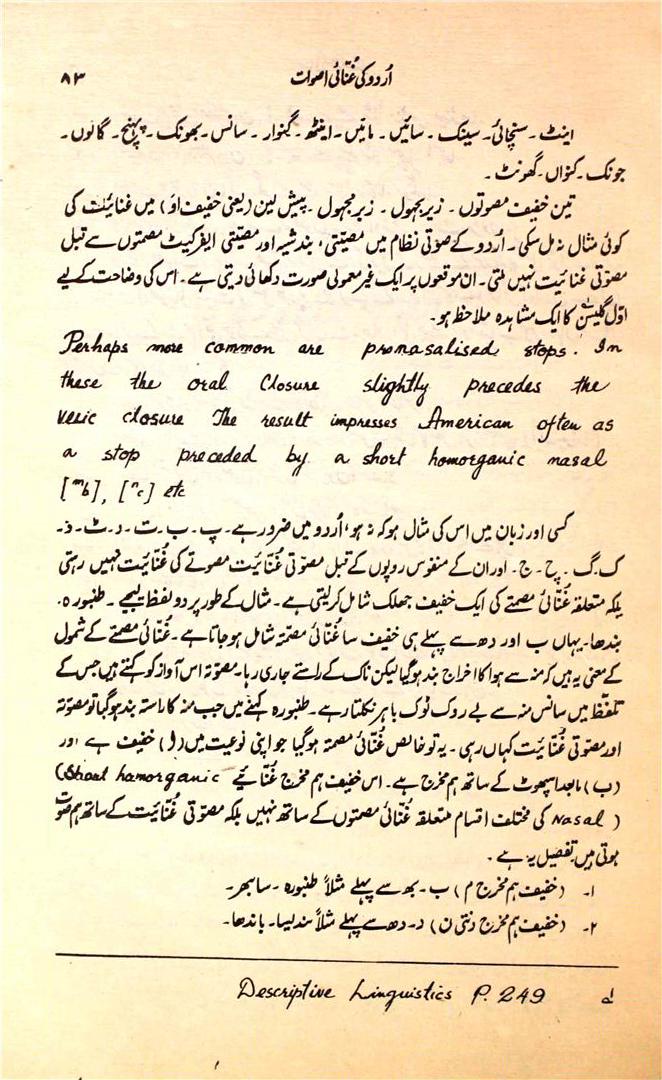 اُردو کی غُنّائی اصوات ۸۳
اینٹ ۔ سنچائی۔ سینک ۔ سائیں ۔ مائیں ۔ اینٹھ ۔ گنوار ۔ سانس ۔ بھونک ۔ پہنچ ۔ گانوں ۔
جونک ۔ کنواں ۔ گھونٹ ۔
تین خفیف مصوتوں ۔ زیر مجہول ۔ زبر مجہول ۔ پیش لین (یعنی خفیف اوَ) میں غنائیت کی
کوئی مثال نہ مل سکی ۔ اُردو کے صوتی نظام میں مصیتی، بندشیہ اور مصیتی ایفرکیٹ مصمتوں سے قبل
مصوتی غنائیت نہیں ملتی ۔ ان موقعوں پر ایک غیر معمولی صورت دکھائی دیتی ہے ۔ اس کی وضاحت کے لیے
اوّل گلیسن کا ایک مشاہدہ ملاحظ ہو۔
Perhaps more common are prenasalised stops. In
these the oral Closure slightly precedes the
velic closure The result impresses American often as
a stop preceded by a short homorganic nasal
[ᵐb], [ⁿc] etc
کسی اور زبان میں اس کی مثال ہو کہ نہ ہو، اُردو میں ضرور ہے ۔ پ ۔ ب ۔ ت ۔ د ۔ ٹ ۔ ڈ ۔
ک ۔ گ ۔ چ ۔ ج ۔ اور ان کے منفوس روپوں کے قبل مصوتی غُنّائیت مصوتے کی غُنّائیت نہیں رہتی
بلکہ متعلقہ غُنّائی مصمتے کی ایک خفیف جھلک شامل کر لیتی ہے ۔ مثال کے طور پر دو لفظ لیجیے ۔ طنبورہ ۔
بندھا۔ یہاں ب اور دھ سے پہلے ہی خفیف سا غُنّائی مصمتہ شامل ہو جاتا ہے ۔ غُنّائی مصمتے کے شمول
کے معنی یہ ہیں کہ منہ سے ہوا کا اخراج بند ہو گیا لیکن ناک کے راستے جاری رہا۔ مصوتہ اس آواز کو کہتے ہیں جس کے
تلفظ میں سانس منہ سے بے روک ٹوک باہر نکلتا رہے ۔ طنبورہ کہنے میں جب منہ کا راستہ بند ہو گیا تو مصوتہ
اور مصوتی غُنّائیت کہاں رہی ۔ یہ تو خالص غُنّائی مصمتہ ہو گیا جو اپنی نوعیت میں (ا) خفیف ہے اور
(ب) مابعد اسپھوٹ کے ساتھ ہم مخرج ہے ۔ اس خفیف ہم مخرج غُنّائیے (Short homorganic
Nasal) کی مختلف اقسام متعلقہ غُنّائی مصمتوں کے ساتھ نہیں بلکہ مصوتی غُنّائیت کے ساتھ ہم صوت
ہوتی ہیں تفصیل یہ ہے ۔
۱۔ (خفیف ہم مخرج م) ب ۔ بھ سے پہلے مثلاً طنبورہ ۔ سانبھر۔
۲۔ (خفیف ہم مخرج دنتی ن) د ۔ دھ سے پہلے مثلاً سندیسا ۔ باندھا۔
Descriptive Linguistics P. 249